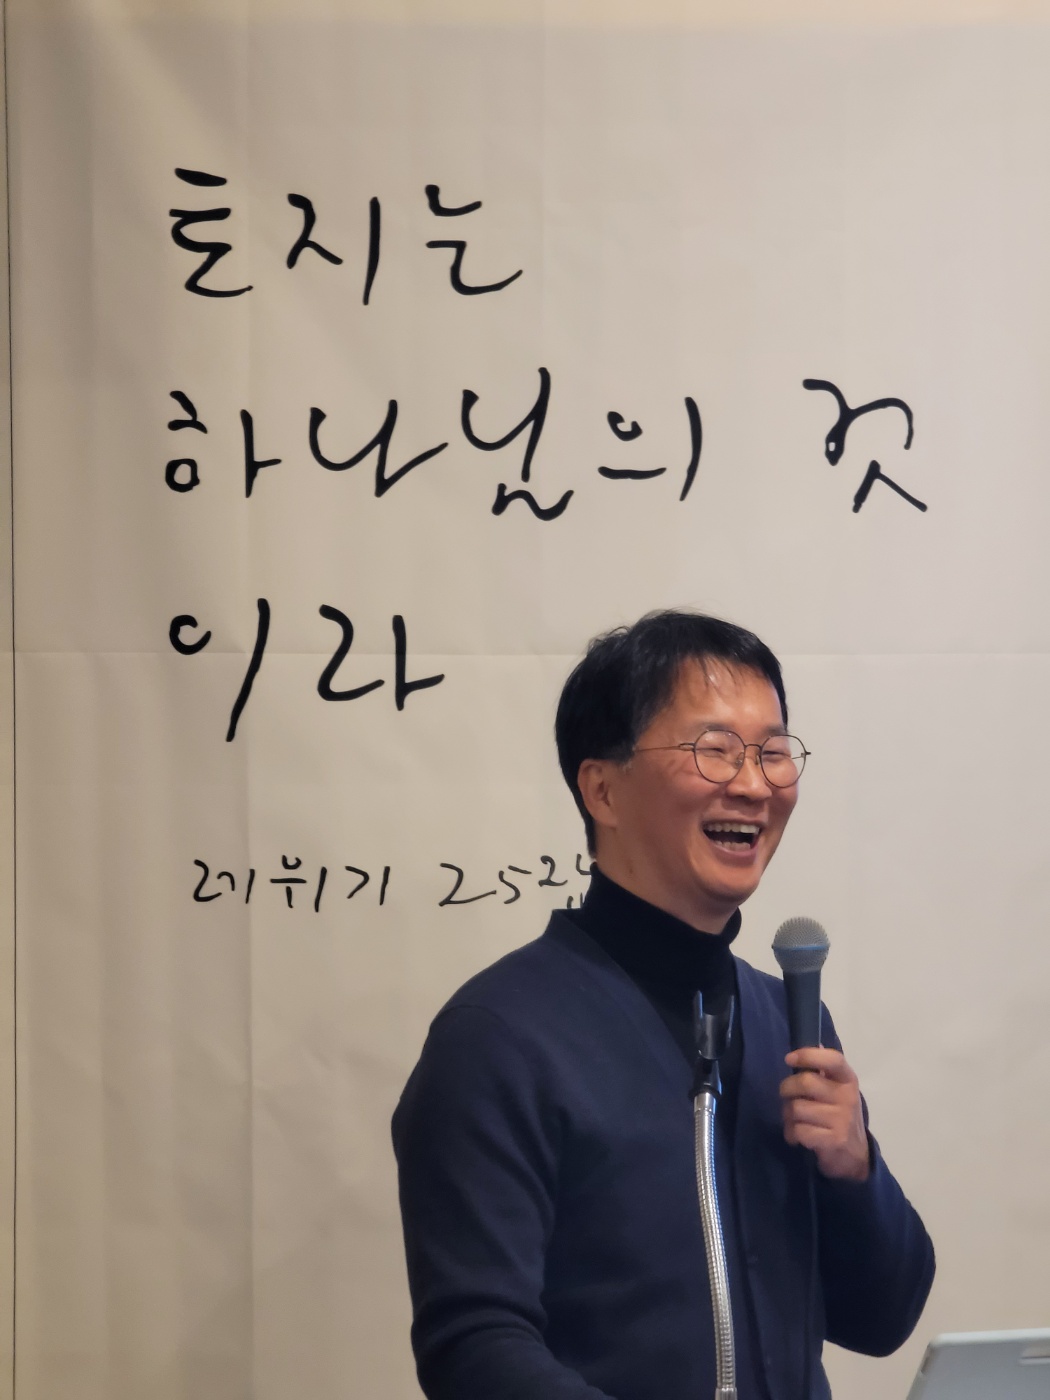 토지는
하나님의 것
이라
레위기 25